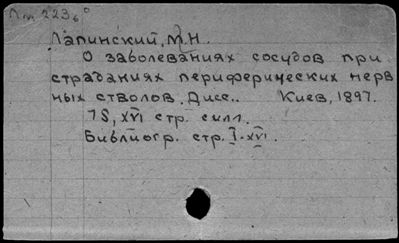 Лапинский, М.Н.
О заболеваниях сосудов при
страданиях периферических нерв
ных стволов. Дисс.. Киев, 1897.
75, XVI стр. силл.
Библиогр. стр. I-XVI.